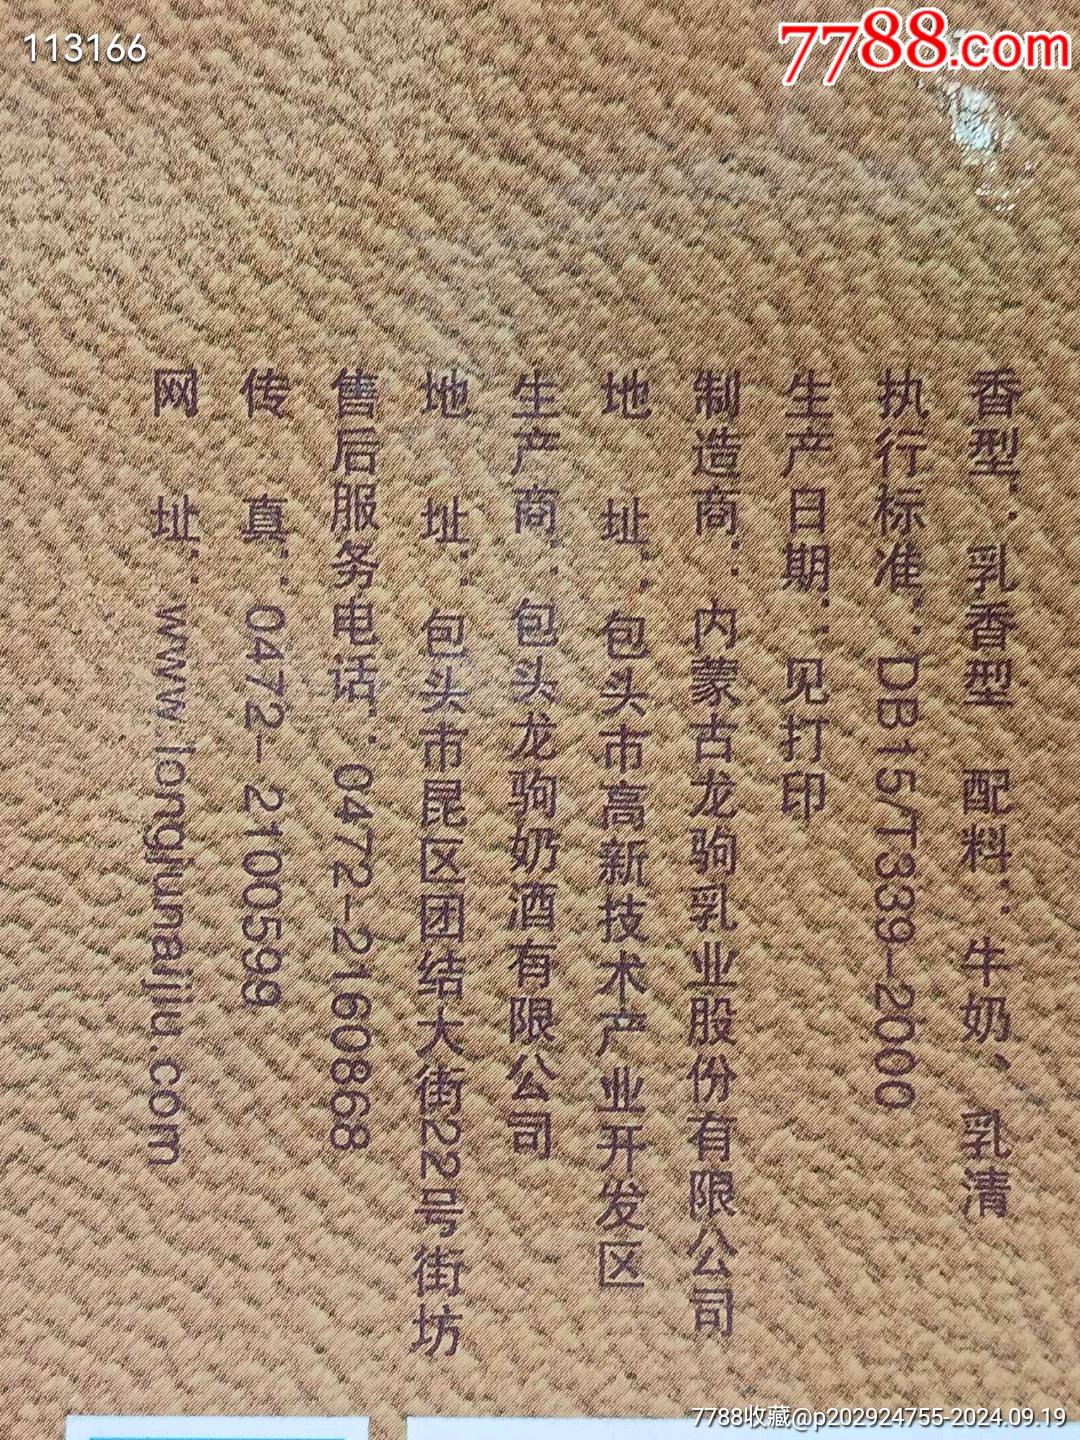 113166
7788.com
香型：乳香型 配料：牛奶、乳清
执行标准：DB15/T339-2000
生产日期：见打印
制造商：内蒙古龙驹乳业股份有限公司
地 址：包头市高新技术产业开发区
生产商：包头龙驹奶酒有限公司
地 址：包头市昆区团结大街22号街坊
售后服务电话：0472-2160868
传 真：0472-2100599
网 址：www.longjunaijiu.com
7788收藏@p202924755-2024.09.19